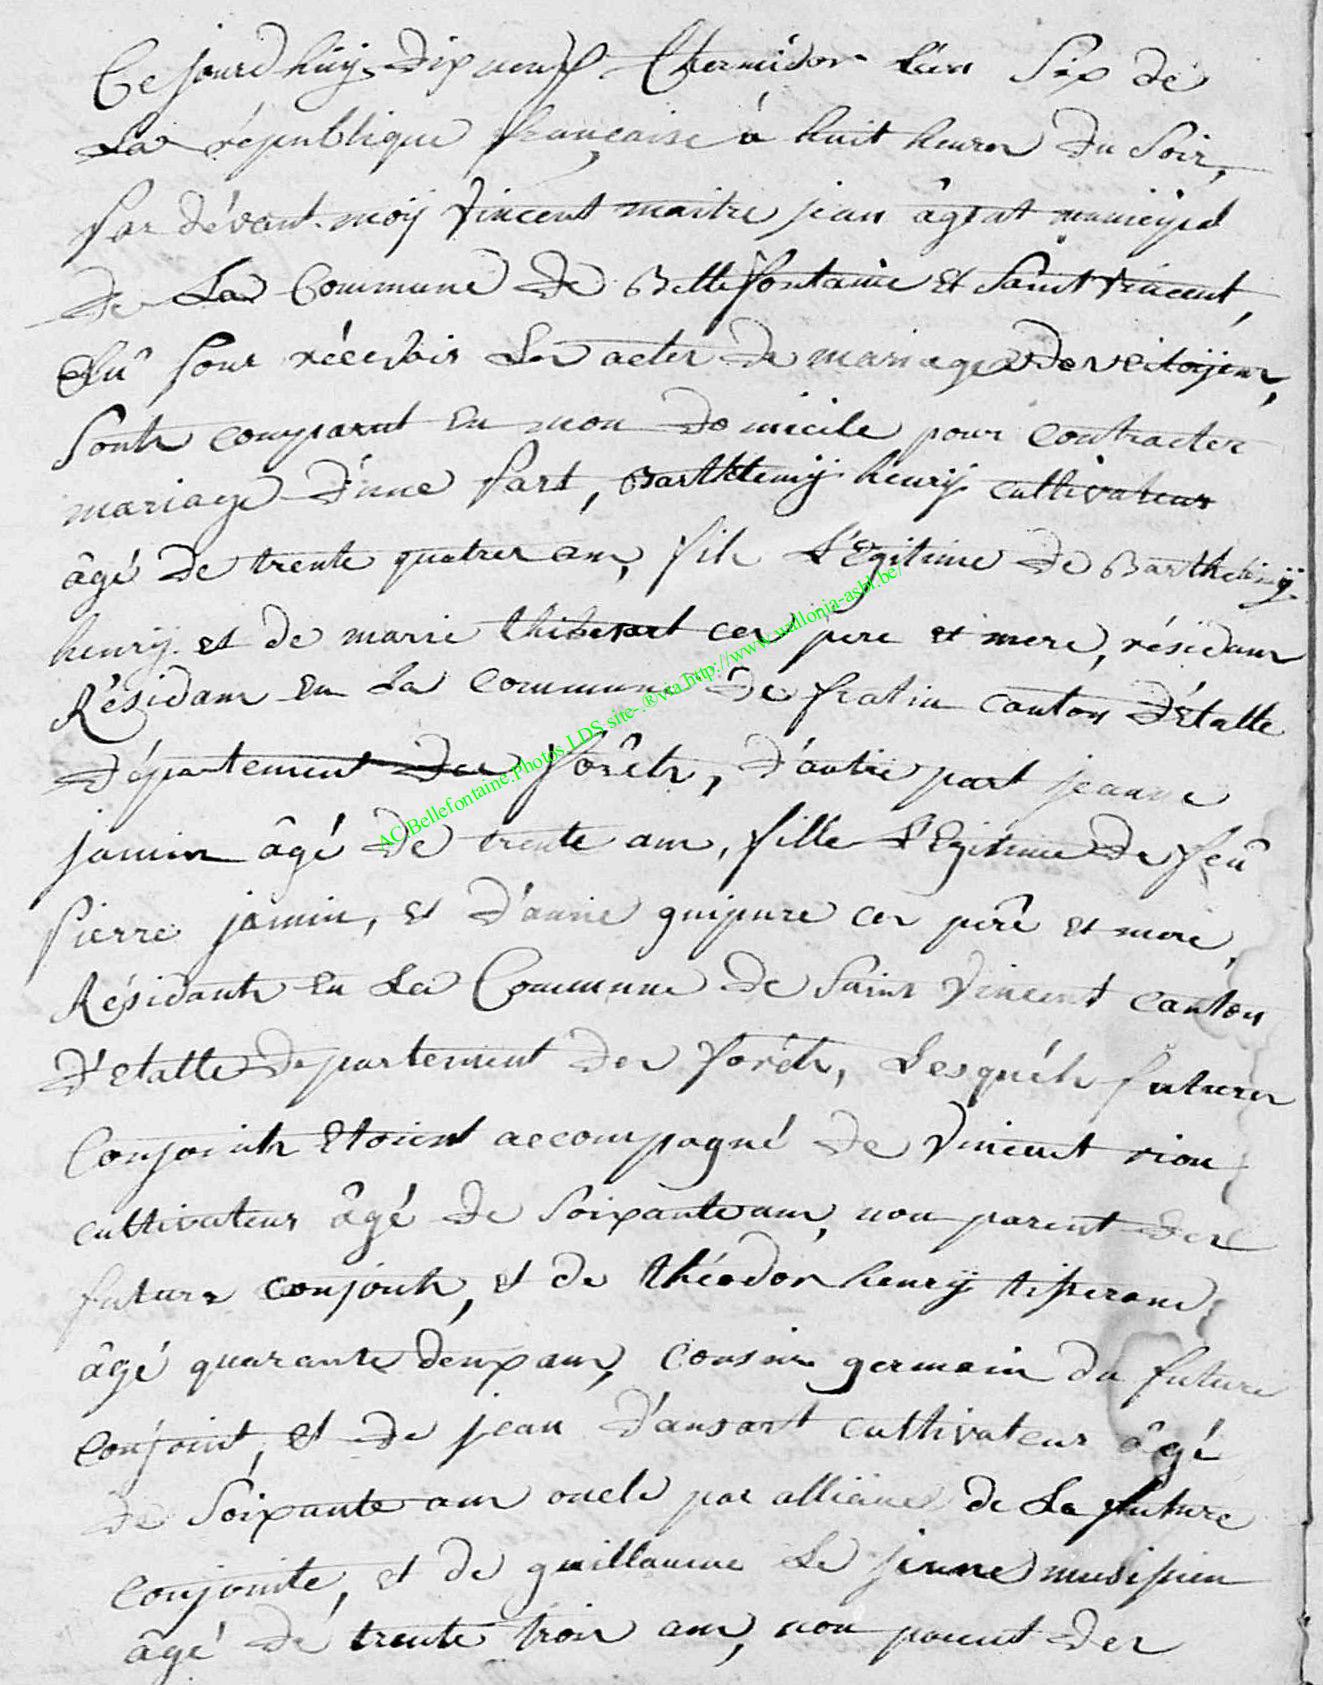 Ce jourd'huij dix neuf thermidor l'an Six de
La république française á huit heures du Soir,
Par dévant moij Vincent maitre jean âgent municipal
de La Commune de Bellefontaine et Saint Vincent,
Elû pour récevoir Les actes de mariages des citoijens,
Sonts comparut en mon domicile pour contracter
mariage d'une part, Barthelemij henrij cultivateur
âgé de trente quatres ans, fils L'Egitime de Barthelemij
henrij et de marie thibesart ces pere et mere, résidans
Résidans en La commune de fratin canton d'étalle
département des forêts, d'autre part jeanne
jamin âgé de trente ans, fille L'Egitime de feû
Pierre jamin, et d'anne guipure ces perê et mere,
Résidants en La Commune de Saint Vincent canton
d'Etalle departement des forêts, Lesquéls futures
Conjoints Etoient accompagné de Vincent rion
cultivateur âgé de Soixante ans, non parent des
futurs conjoints, et de théodor henrij tisserans
âgé quarante deux ans, Cousin germain du future
conjoint, et de jean d'ansart cultivateur âgé
de Soixante ans oncle par alliance de La future
conjointe, et de guillaume Le jeune musissien
âgé dé trente trois ans, non parent des
AC.Bellefontaine.Photos LDS site-.®via http://www.wallonia-asbl.be/